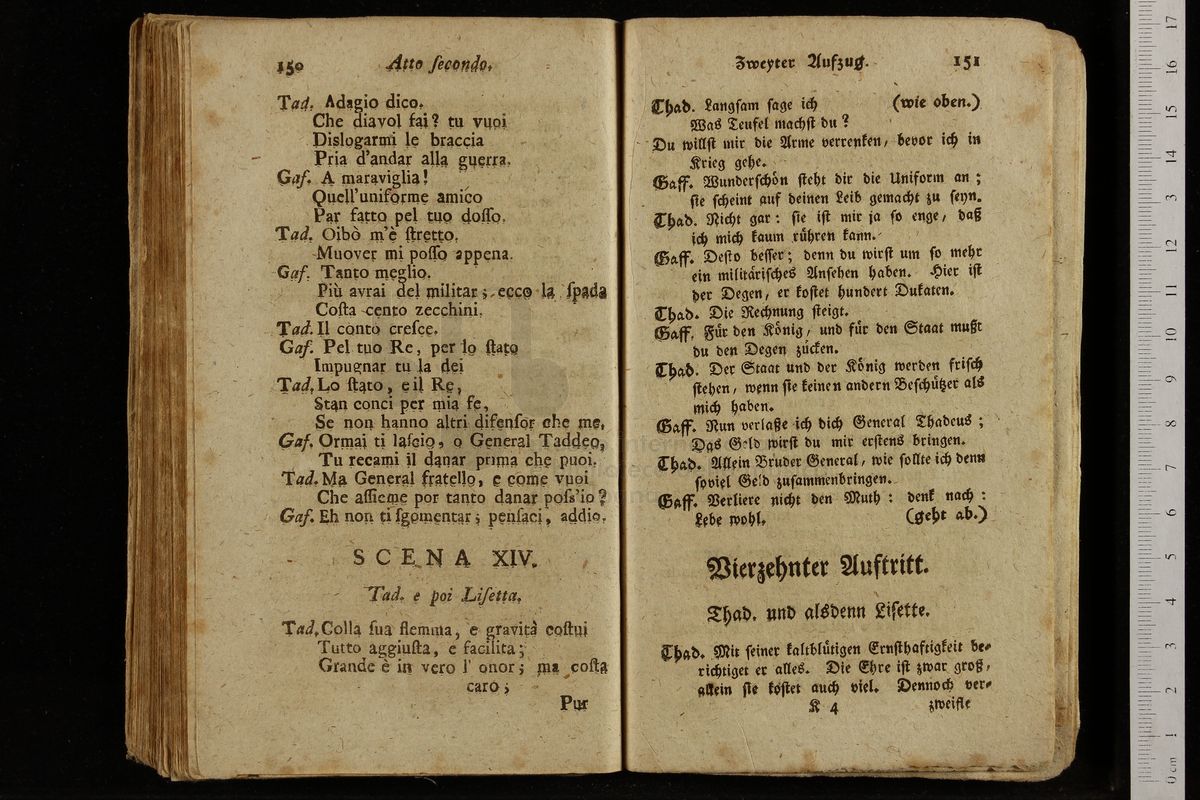 150 Atto ſecondo.
Tad. Adagio dico.
Che diavol fai? tu vuoi
Dislogarmi le braccia
Pria d'andar alla guerra.
Gaf. A maraviglia!
Quell'uniforme amico
Par fatto pel tuo doſſo.
Tad. Oibò m'è ſtretto.
Muover mi poſſo appena.
Gaf. Tanto meglio.
Più avrai del militar; ecco la ſpada
Coſta cento zecchini.
Tad. Il conto creſce.
Gaf. Pel tuo Re, per lo ſtato
Impugnar tu la dei
Tad. Lo ſtato, e il Re,
Stan conci per mia fe,
Se non hanno altri difenſor che me.
Gaf. Ormai ti laſcio, o General Taddeo,
Tu recami il danar prima che puoi.
Tad. Ma General fratello, e come vuoi
Che aſſieme por tanto danar poſs'io?
Gaf. Eh non ti ſgomentar; penſaci, addio.
SCENA XIV.
Tad. e poi Liſetta.
Tad. Colla ſua flemma, e gravità coſtui
Tutto aggiuſta, e facilita;
Grande è in vero l' onor; ma coſta
caro;
Pur
Zweyter Aufzug. 151
Thad. Langſam ſage ich (wie oben.)
Was Teufel machſt du?
Du willſt mir die Arme verrenken, bevor ich in
Krieg gehe.
Gaff. Wunderſchön ſteht dir die Uniform an;
ſie ſcheint auf deinen Leib gemacht zu ſeyn.
Thad. Nicht gar: ſie iſt mir ja ſo enge, daß
ich mich kaum rühren kann.
Gaff. Deſto beſſer; denn du wirſt um ſo mehr
ein militäriſches Anſehen haben. Hier iſt
der Degen, er koſtet hundert Dukaten.
Thad. Die Rechnung ſteigt.
Gaff. Für den König, und für den Staat mußt
du den Degen zücken.
Thad. Der Staat und der König werden friſch
ſtehen, wenn ſie keinen andern Beſchützer als
mich haben.
Gaff. Nun verlaße ich dich General Thadeus;
Das Geld wirſt du mir erſtens bringen.
Thad. Allein Bruder General, wie ſollte ich denn
ſoviel Geld zuſammenbringen.
Gaff. Verliere nicht den Muth: denk nach:
Lebe wohl. (geht ab.)
Vierzehnter Auftritt.
Thad. und alsdenn Liſette.
Thad. Mit ſeiner kaltblütigen Ernſthaftigkeit be-
richtiget er alles. Die Ehre iſt zwar groß,
allein ſie koſtet auch viel. Dennoch ver-
K 4 zweifle